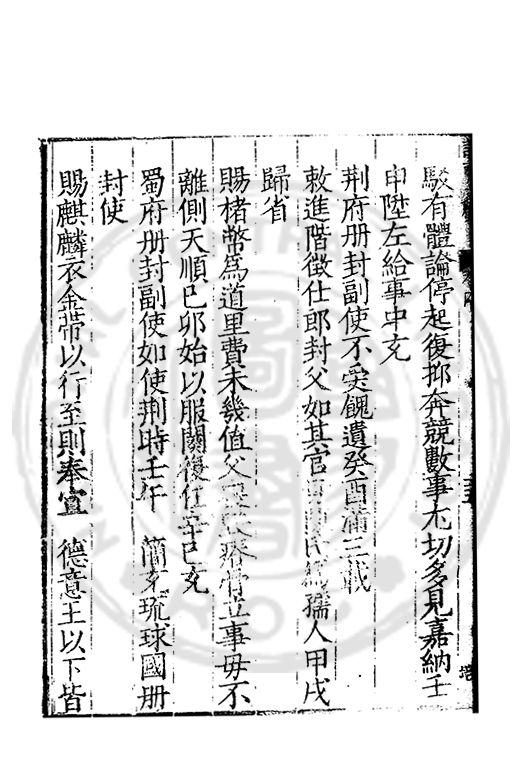 駁有體論停起復抑奔競數事尤切多見嘉納壬
申陞左給事中充
荆府册封副使不受餽遺癸酉滿三載
敕進階徵仕郎封父如其官 孺人甲戌
歸省
賜楮幣為道里費未幾值父 瘠骨立事毋不
離側天順己卯始以服闋復任辛巳充
蜀府册封副使如使荆時壬午 簡充琉球國册
封使
賜麒麟衣金帶以行至則奉宣 德意王以下皆